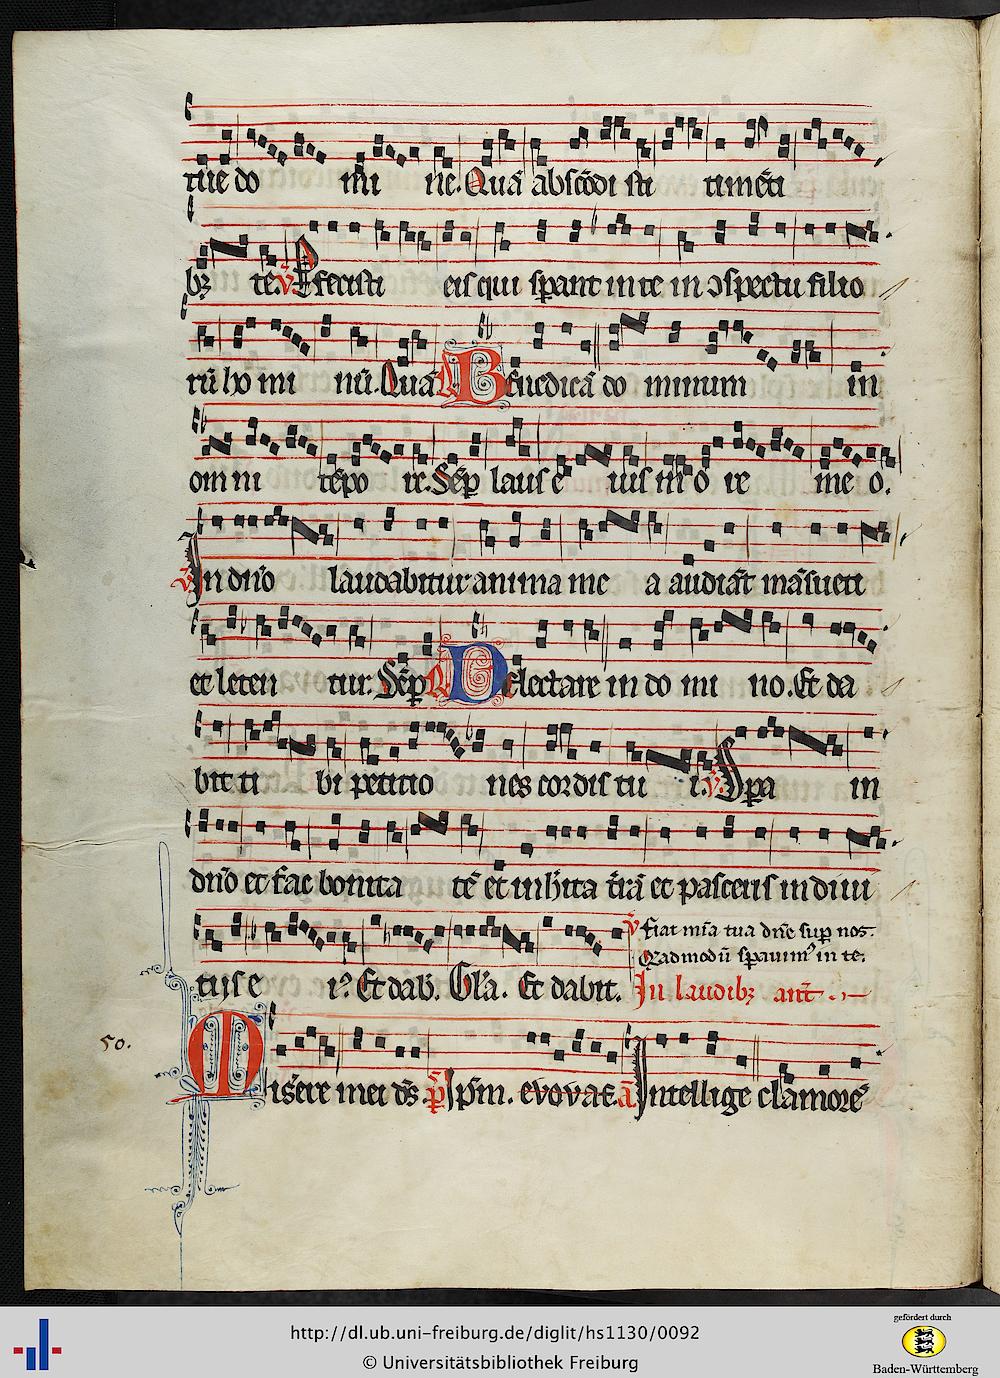 tue do mi ne. Quā abscōdi sti timēti
bꝫ te. ℣ Pfecisti eis qui sperant in te in ɔspectu filio
rū ho mi nū. Quā Benedicā do minum in
om ni tēpo re. Sēp laus e ius in o re me o.
℣ In dn̄o laudabitur anima me a audiāt māsueti
et leten tur. Sēp Delectare in do mi no. Et da
bit ti bi petitio nes cordis tu i. ℣ Spa in
dn̄o et fac bonita tē et inhita t̄rā et pasceris in diui
tiis e iꝰ. Et dab. Gl̄a. Et dabit.
℣ Fiat mīa tua dn̄e sup nos.
Qeadmodū sperauimꝰ in te.
In laudibꝫ ant̄
50.
Misere mei ds̄ p̄s Ipm̄. evovae. ā Intellige clamorē
http://dl.ub.uni-freiburg.de/diglit/hs1130/0092
© Universitätsbibliothek Freiburg
gefördert durch
Baden-Württemberg